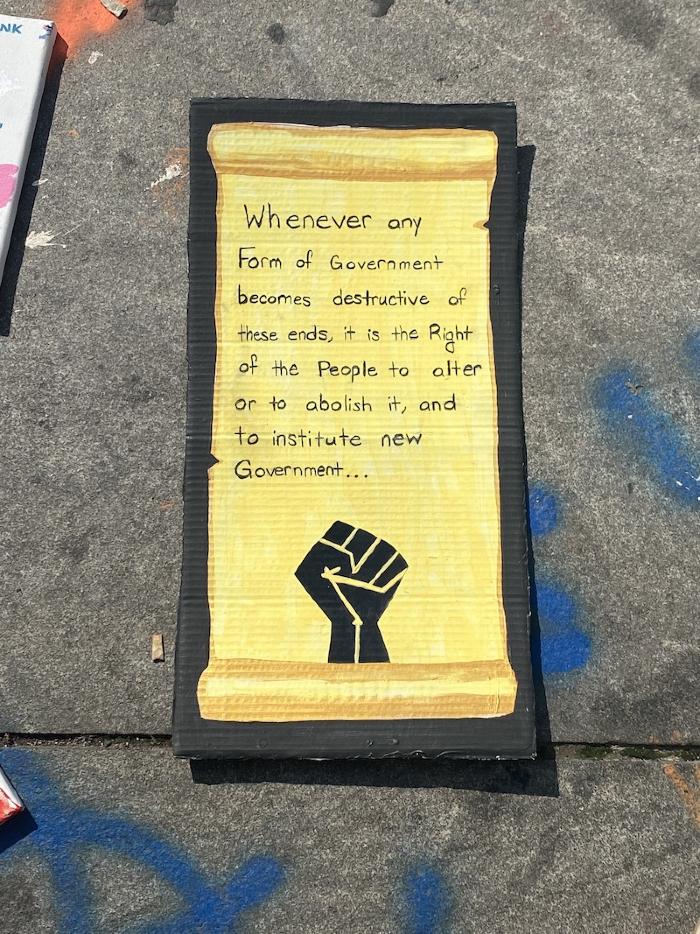 NK
Whenever any
Form of Government
becomes destructive of
these ends, it is the Right
of the People to alter
or to abolish it, and
to institute new
Government...